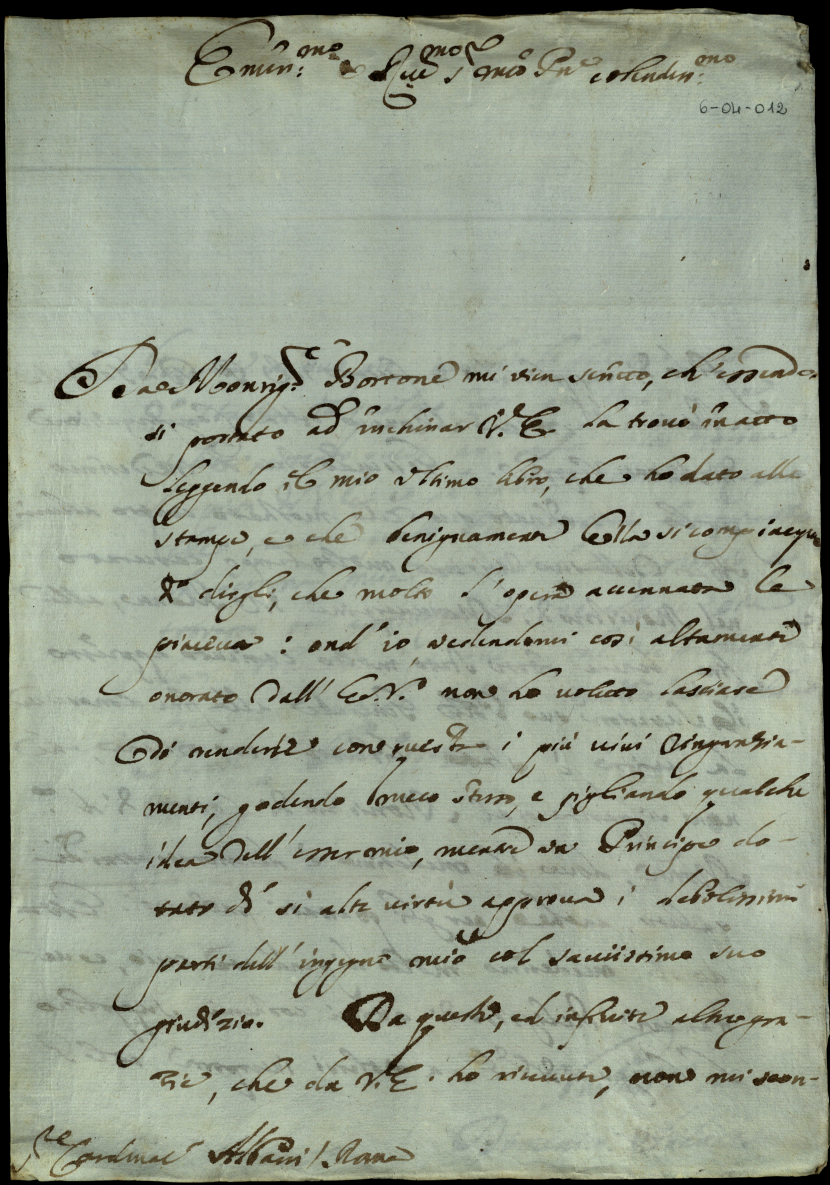 Emin:mo e Rev:mo Sr mio Pne colendis:mo
6-04-012
Da Monsig:re Bortone mi vien scritto, ch'essendo
si portato ad inchinar V.E. la trovò in atto
leggendo il mio ultimo libro, che ho dato alle
stampe, e che benignamente Ella si compiacque
di dirgli, che molto l'opera accennata le
piaceva: ond'io vedendomi così altamente
onorato dall'E.V. non ho voluto lasciare
di renderle con questa i più vivi ringrazia-
menti, godendo meco stesso, e pigliando qualche
idea dell'esser mio, mentre un Principe do-
tato di sì alte virtù approva i debolissimi
parti dell'ingegno mio col saviissimo suo
giudizio. Da queste, ed infinite altre gra-
zie, che da V.E. ho ricevute, non mi scor-
Sre Cardinal Albani / Roma